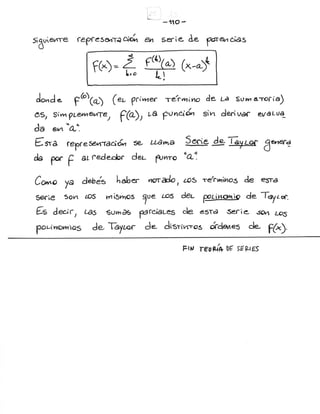 - 110 -
siguiente representación en serie de potencias
f(x) = Σ_{k=0}^{∞} f^{(k)}(a)/k! (x-a)^k
donde f^{(0)}(a) (el primer término de la sumatoria)
es, simplemente, f(a), la función sin derivar evalua
da en "a".
Esta representación se llama Serie de Taylor genera
da por f alrededor del punto "a".
Como ya debés haber notado, los términos de esta
serie son los mismos que los del polinomio de Taylor.
Es decir, las sumas parciales de esta serie son los
polinomios de Taylor de distintos órdenes de f(x).
FIN TEORÍA DE SERIES